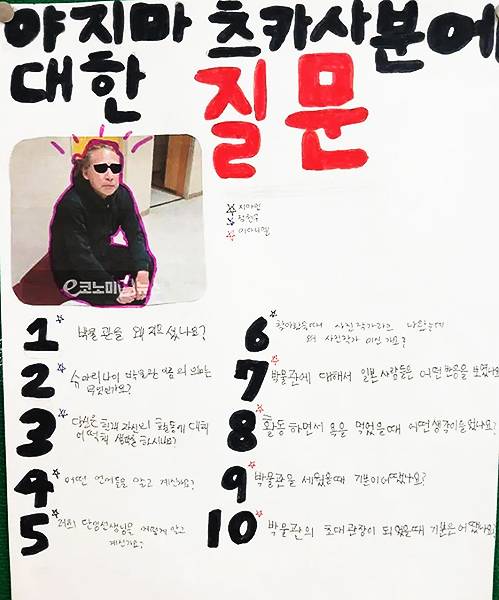 야지마 츠카사분에
대한 질문
e코노미
☆지아인
☆정현우
☆이다니엘
1 박물관을 왜 지으셨나요?
2 박물관 이름의 의미는
무엇인가요?
3 당신은 현재 자신의 활동에 대해
어떻게 생각을 하시나요?
4 어떤 언어들을 알고 계신가요?
5 저희 단영선생님을 어떻게 알고
계신가요?
6 찾아봤을때 사진작가라고 나오는데
왜 사진작가 이신가요?
7 박물관에 대해서 일본 사람들은 어떤 반응을 보였나요
8 활동하면서 욕을 먹었을때 어떤생각이 들었나요?
9 박물관을 세웠을때 기분이 어땠나요?
10 박물관의 초대관장이 되었을때 기분은 어땠나요